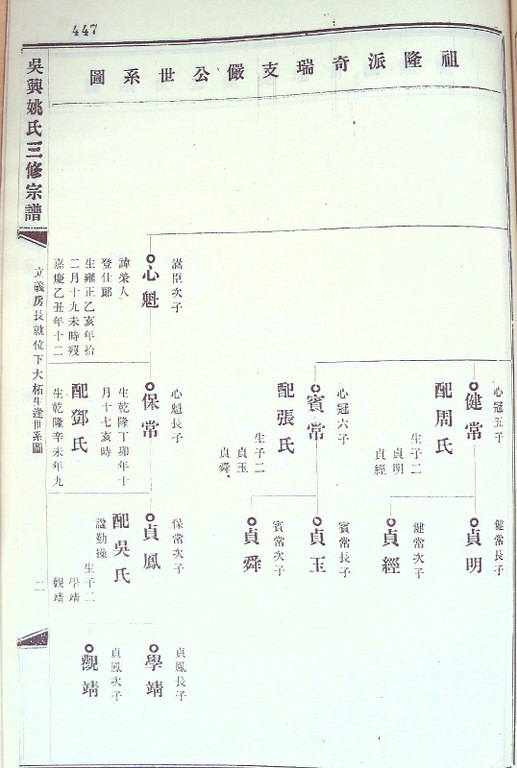 447
祖隆派奇瑞支儼公世系圖
吳興姚氏三修宗譜
二
心五子
健常
配周氏
生子二
貞明
貞經
心冠六子
賓常
配張氏
生子二
貞玉
貞舜
謐臣次子
心魁
諱榮人
登仕郎
生雍正乙亥年拾
二月十九未時歿
嘉慶乙丑年十二
心魁長子
保常
生乾隆丁卯年十
月十七亥時
配鄧氏
生乾隆辛未年九
健常長子
貞明
健常次子
貞經
賓常長子
貞玉
賓常次子
貞舜
保常次子
貞鳳
配吳氏
諡勤操
生子二
學靖
觀靖
貞鳳長子
學靖
貞鳳次子
觀靖